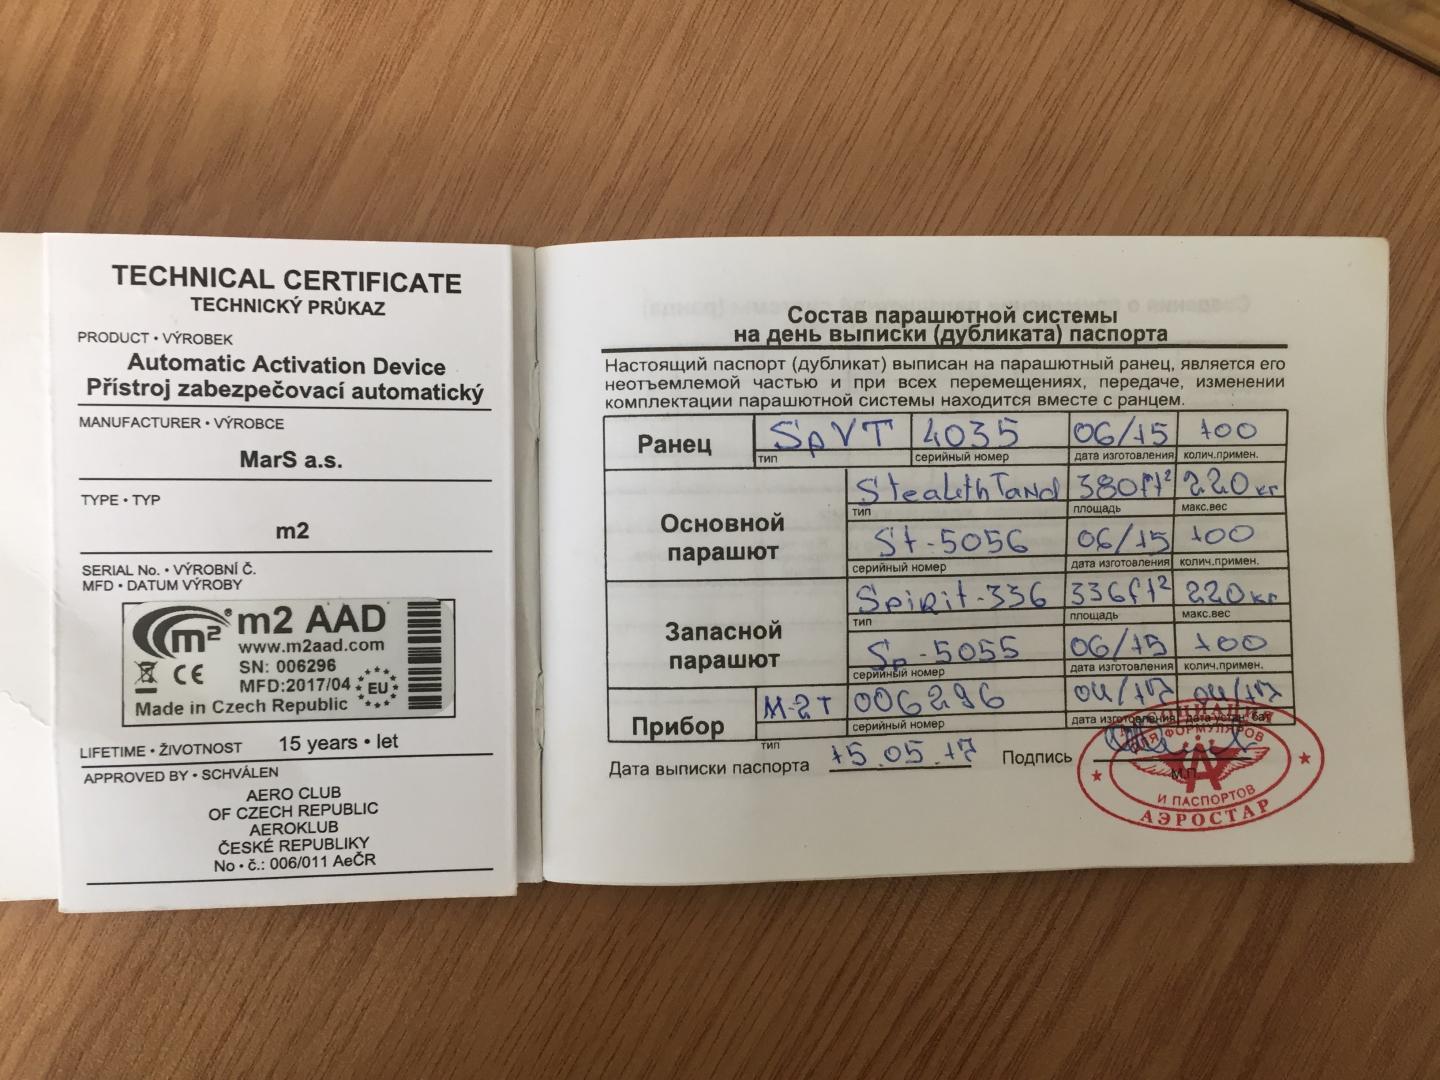 TECHNICAL CERTIFICATE
TECHNICKÝ PRŮKAZ
PRODUCT • VÝROBEK
Automatic Activation Device
Přístroj zabezpečovací automatický
MANUFACTURER • VÝROBCE
MarS a.s.
TYPE • TYP
m2
SERIAL No. • VÝROBNÍ Č.
MFD • DATUM VÝROBY
m2® m2 AAD
www.m2aad.com
SN: 006296
CE
MFD:2017/04
EU
Made in Czech Republic
LIFETIME • ŽIVOTNOST 15 years • let
APPROVED BY • SCHVÁLEN
AERO CLUB
OF CZECH REPUBLIC
AEROKLUB
ČESKÉ REPUBLIKY
No • č.: 006/011 AeČR
Состав парашютной системы
на день выписки (дубликата) паспорта
Настоящий паспорт (дубликат) выписан на парашютный ранец, является его
неотъемлемой частью и при всех перемещениях, передаче, изменении
комплектации парашютной системы находится вместе с ранцем.
Ранец SpVT 4035 06/15 100
тип серийный номер дата изготовления колич.примен.
Основной парашют
Stealth Tand 380ft² 220кг
тип площадь макс.вес
St-5056 06/15 100
серийный номер дата изготовления колич.примен.
Запасной парашют
Spirit-336 336ft² 220кг
тип площадь макс.вес
Sp-5055 06/15 100
серийный номер дата изготовления колич.примен.
Прибор M-2T 006296 04/17 04/17
тип серийный номер дата изготовления дата устан. бат.
Дата выписки паспорта 15.05.17 Подпись
М.П.
АССОЦИАЦИЯ
ДЛЯ ФОРМУЛЯРОВ
И ПАСПОРТОВ
АЭРОСТАР